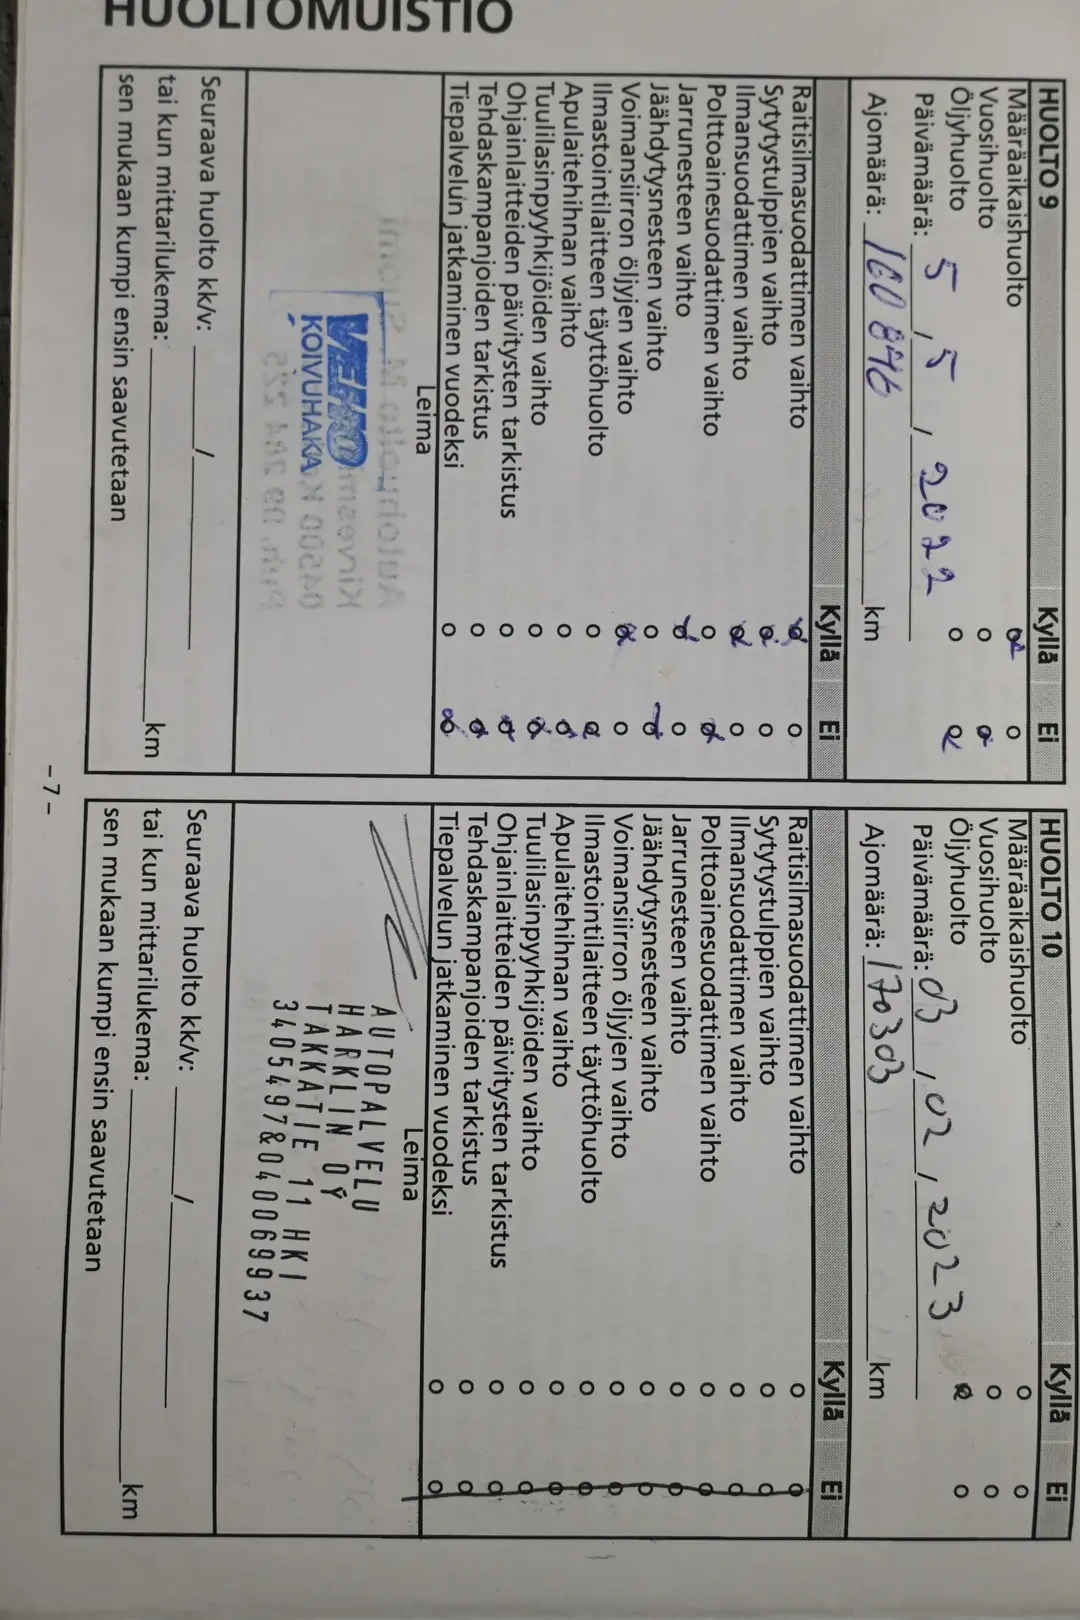 HUOLTOMUISTIO
HUOLTO 9 Kyllä Ei
Määräaikaishuolto
Vuosihuolto
Öljyhuolto
Päivämäärä: 5 / 5 / 2022
Ajomäärä: 160 896 km
Kyllä Ei
Raitisilmasuodattimen vaihto
Sytytystulppien vaihto
Ilmansuodattimen vaihto
Polttoainesuodattimen vaihto
Jarrunesteen vaihto
Jäähdytysnesteen vaihto
Voimansiirron öljyjen vaihto
Ilmastointilaitteen täyttöhuolto
Apulaitehihnan vaihto
Tuulilasinpyyhkijöiden vaihto
Ohjainlaitteiden päivitysten tarkistus
Tehdaskampanjoiden tarkistus
Tiepalvelun jatkaminen vuodeksi
Leima
VEHO
KOIVUHAKA
Seuraava huolto kk/v: /
tai kun mittarilukema: km
sen mukaan kumpi ensin saavutetaan
HUOLTO 10 Kyllä Ei
Määräaikaishuolto
Vuosihuolto
Öljyhuolto
Päivämäärä: 03 / 02 / 2023
Ajomäärä: 170303 km
Kyllä Ei
Raitisilmasuodattimen vaihto
Sytytystulppien vaihto
Ilmansuodattimen vaihto
Polttoainesuodattimen vaihto
Jarrunesteen vaihto
Jäähdytysnesteen vaihto
Voimansiirron öljyjen vaihto
Ilmastointilaitteen täyttöhuolto
Apulaitehihnan vaihto
Tuulilasinpyyhkijöiden vaihto
Ohjainlaitteiden päivitysten tarkistus
Tehdaskampanjoiden tarkistus
Tiepalvelun jatkaminen vuodeksi
Leima
AUTOPALVELU
HARKLIN OY
TAKKATIE 11 HKI
3405497&040069937
Seuraava huolto kk/v: /
tai kun mittarilukema: km
sen mukaan kumpi ensin saavutetaan
– 7 –